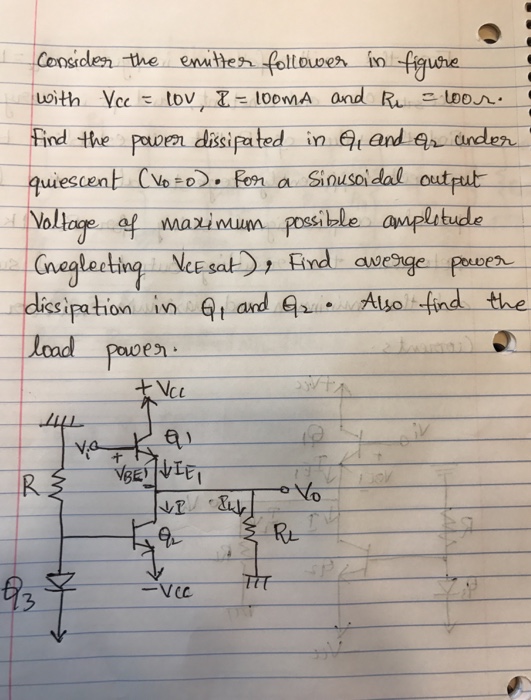 Consider the emitter follower in figure
with Vcc = 10V, I = 100mA and RL = 100Ω.
Find the power dissipated in Q1 and Q2 under
quiescent (Vo=0). For a Sinusoidal output
Voltage of maximum possible amplitude
(neglecting VCEsat), Find averge power
dissipation in Q1 and Q2. Also find the
load power.
+ Vcc
Vi
Q1
+
VBE1
-
↓IE1
R
Vo
↓I
IL↓
Q2
RL
Q3
-Vcc